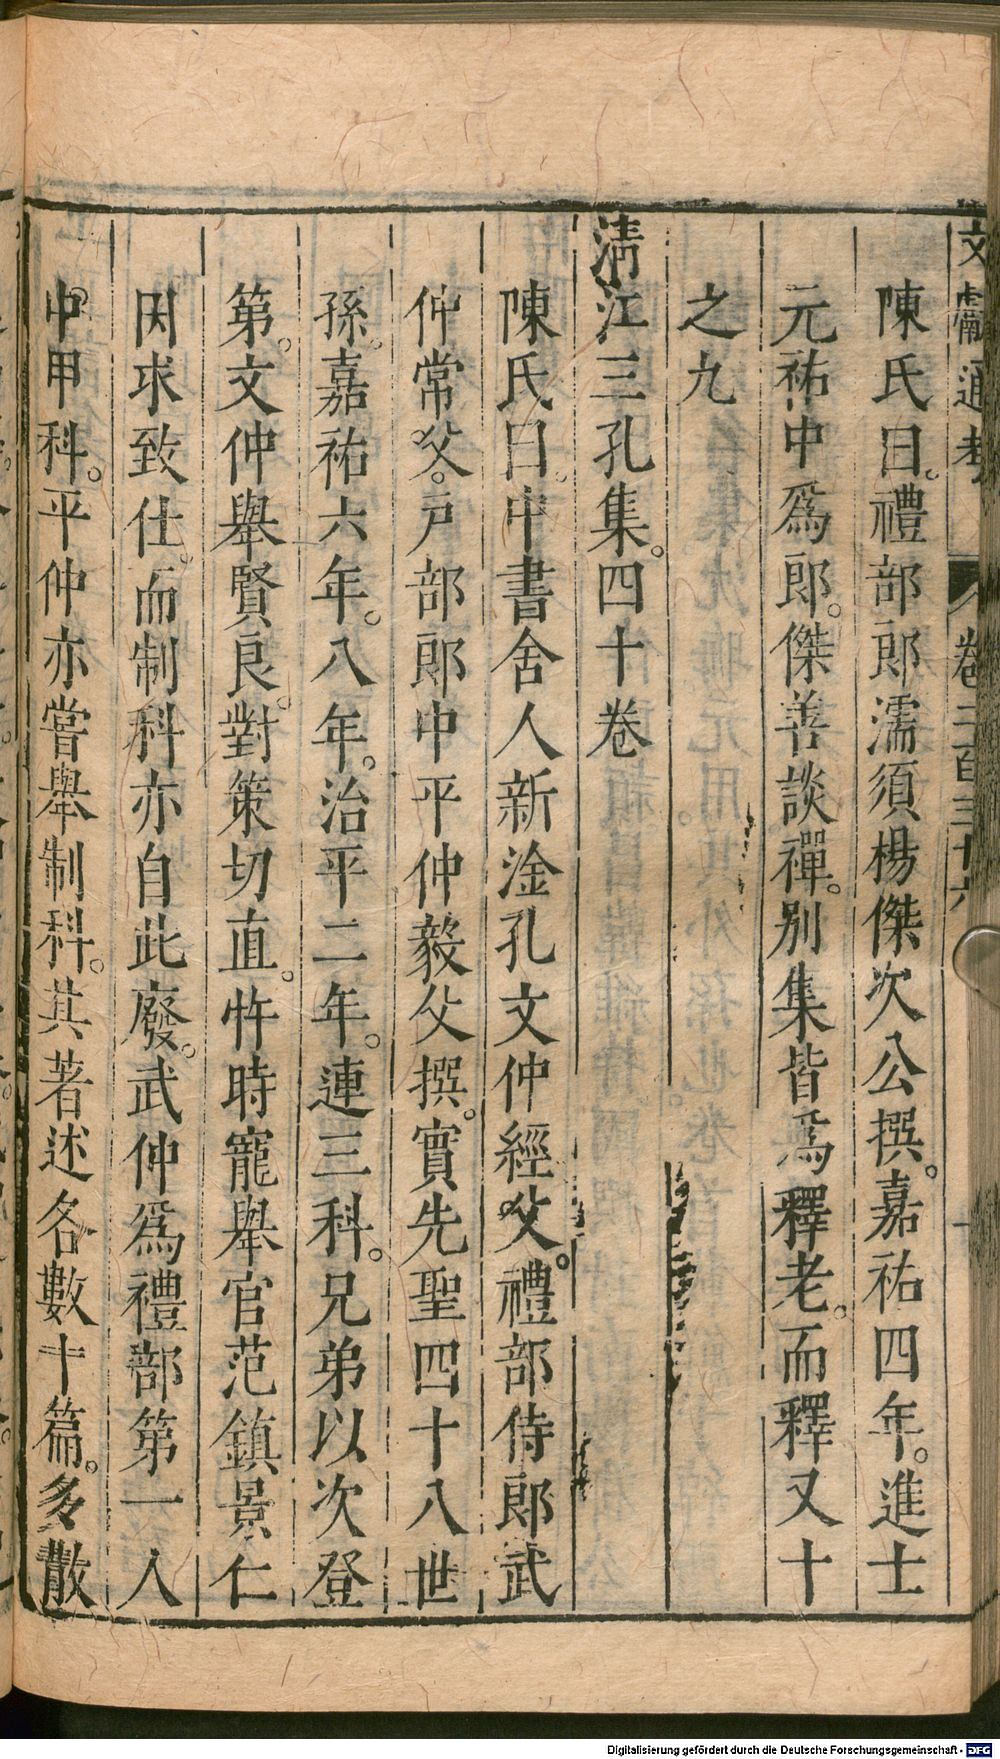 文獻通考 卷二百三十六
陳氏曰。禮部郎濡須楊傑次公撰。嘉祐四年。進士
元祐中爲郎。傑善談禪。別集皆爲釋老。而釋又十
之九
淸江三孔集。四十卷
陳氏曰。中書舍人新淦孔文仲經父。禮部侍郎武
仲常父。戸部郎中平仲毅父撰。實先聖四十八世
孫。嘉祐六年。八年。治平二年。連三科。兄弟以次登
第。文仲舉賢良。對策切直。忤時寵舉官范鎮景仁
因求致仕。而制科亦自此廢。武仲爲禮部第一人
中甲科。平仲亦嘗舉制科。其著述各數十篇。多散
Digitalisierung gefördert durch die Deutsche Forschungsgemeinschaft - DFG